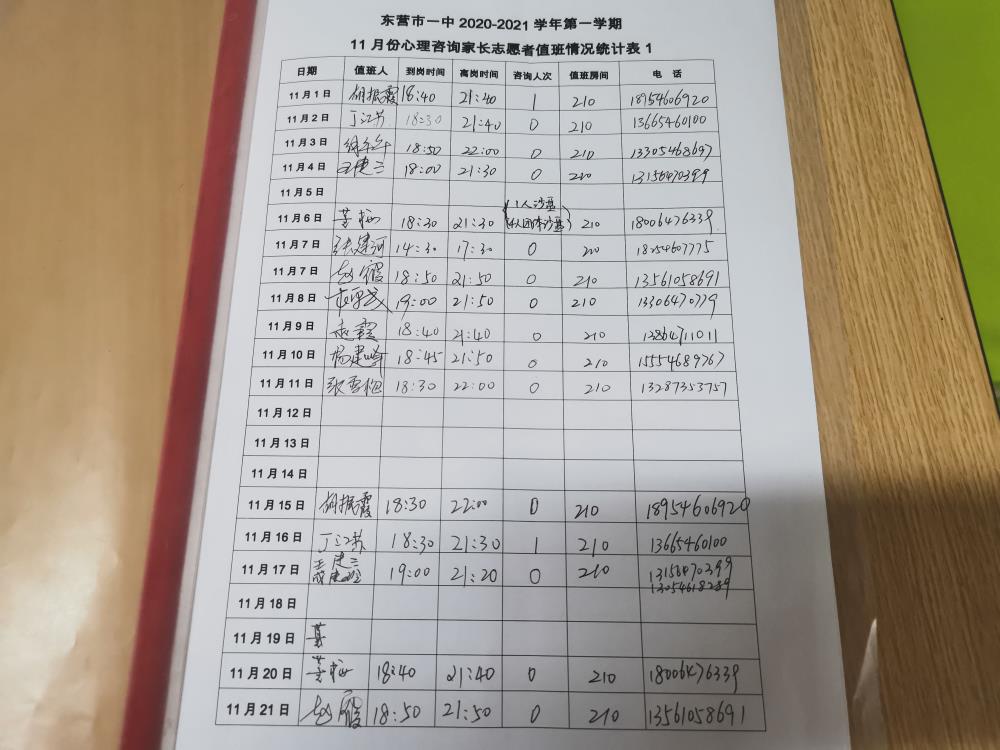 东营市一中 2020-2021 学年第一学期
11 月份心理咨询家长志愿者值班情况统计表 1
日期 值班人 到岗时间 离岗时间 咨询人次 值班房间 电 话
11 月 1 日 胡振霞 18:40 21:40 1 210 18954606920
11 月 2 日 丁江苏 18:30 21:40 0 210 13665460100
11 月 3 日 18:50 22:00 0 210 13305468697
11 月 4 日 王建三 18:00 21:30 0 210 13156470399
11 月 5 日
11 月 6 日 18:30 21:30 1人沙盘 4人团体沙盘 210 18006476339
11 月 7 日 张建河 14:30 17:30 0 210 18254607775
11 月 7 日 赵霞 18:50 21:50 0 210 13561058691
11 月 8 日 19:00 21:50 0 210 13306470779
11 月 9 日 赵霞 18:40 21:40 0 210 12864711011
11 月 10 日 杨建峰 18:45 21:50 0 210 15554689767
11 月 11 日 张雪梅 18:30 22:00 0 210 13287353757
11 月 12 日
11 月 13 日
11 月 14 日
11 月 15 日 胡振霞 18:30 22:00 0 210 18954606920
11 月 16 日 丁江苏 18:30 21:30 1 210 13665460100
11 月 17 日 王建三 19:00 21:20 0 210 13156470399
13054618289
11 月 18 日
11 月 19 日
11 月 20 日 18:40 21:40 0 210 18006476339
11 月 21 日 赵霞 18:50 21:50 0 210 13561058691